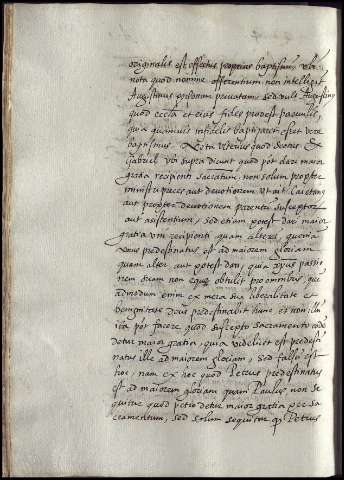 originalis est effectus proprius baptismi, ubi
nota quod nomine offerentium non intelligit
Augustinus personam privatam, sed vult Augustinus
quod eccla et eius fides prodest parvulis,
quia quamvis infidelis baptizaret esset vere
baptismus. Nota ulterius quod Scotus et
Gabriel ubi supra dicunt quod pot dari maior
gratia recipienti sacrātum, non solum propter
ministri preces aut devotionem ut ait Caietanus
aut propter devotionem parentū susceptorū
aut asistentium, sed etiam potest dari maior
gratia uni recipienti quam alteri, quonia
unus predestinatus est ad maiorem gloriam
quam alter, aut potest dari, quia xp̄us passio
nem suam non eque obtulit pro omnibus, que
admodum enim ex mera sua liberalitate et
benignitate deus predestinavit hunc, et non illū
ita pot facere quod suscepto sacramento
detur maior gratia, quia videlicet est predesti
natus ille ad maiorem gloriam, sed falsū est
hoc, nam ex hoc quod Petrus predestinatus
est ad maiorem gloriam quam Paulus non se
quitur quod petro detur maior gratia per sa
cramentum, sed solum sequitur q Petrus